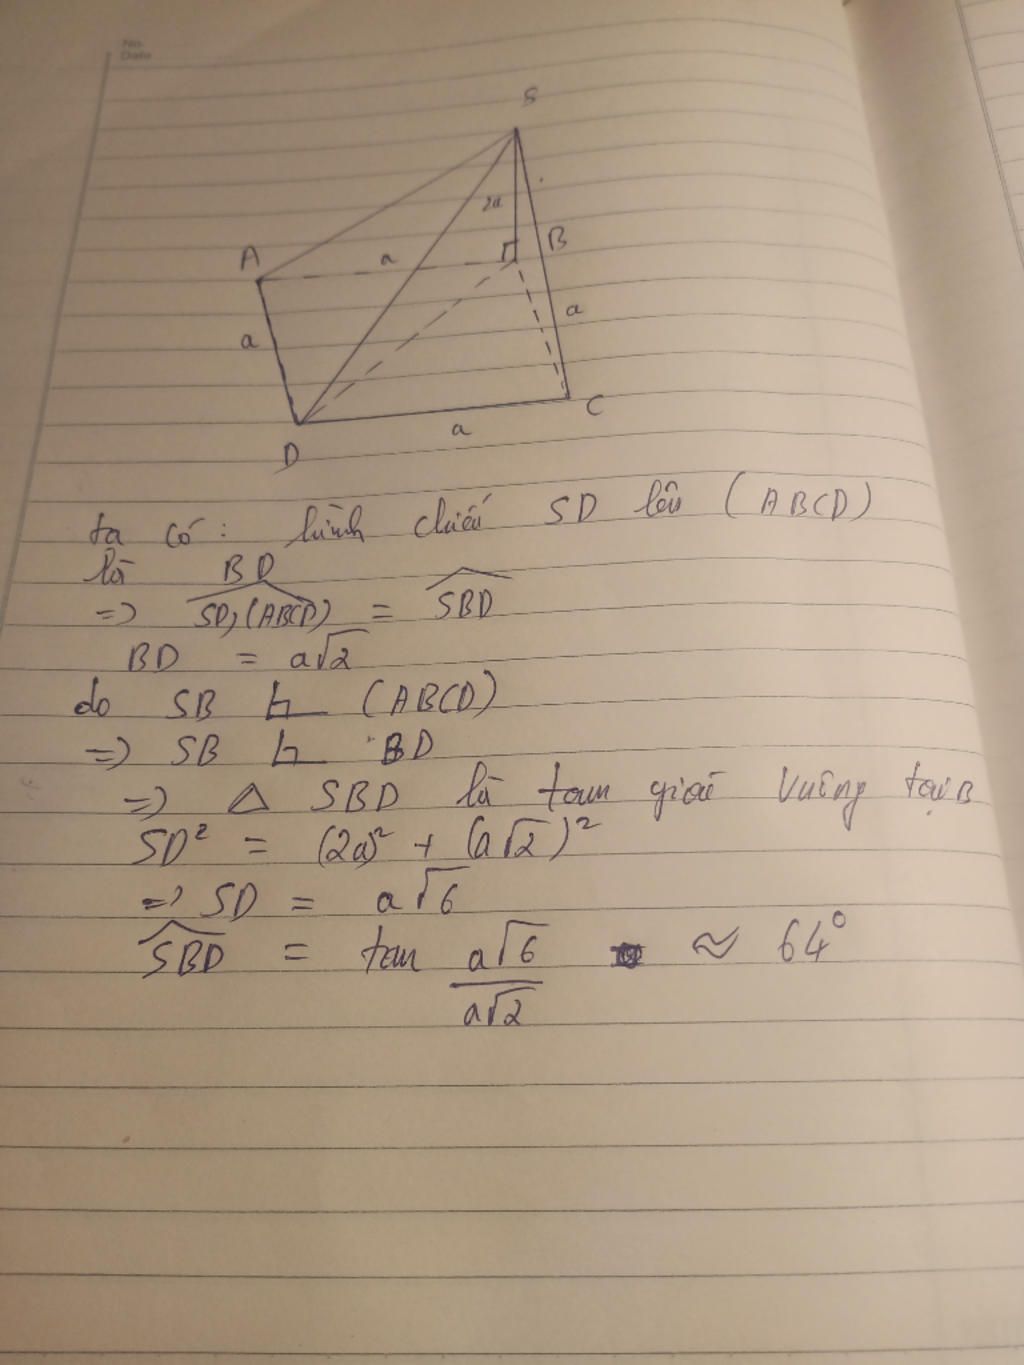 No.
Date
S
2a
A
a
B
a
a
D
a
C
ta có: hình chiếu SD lên (ABCD)
là BD
=> SD,(ABCD) = SBD
BD = a√2
do SB ⊥ (ABCD)
=> SB ⊥ BD
=> △ SBD là tam giác vuông tại B
SD² = (2a)² + (a√2)²
=> SD = a√6
SBD = tan a√6/a√2 ≈ 64°